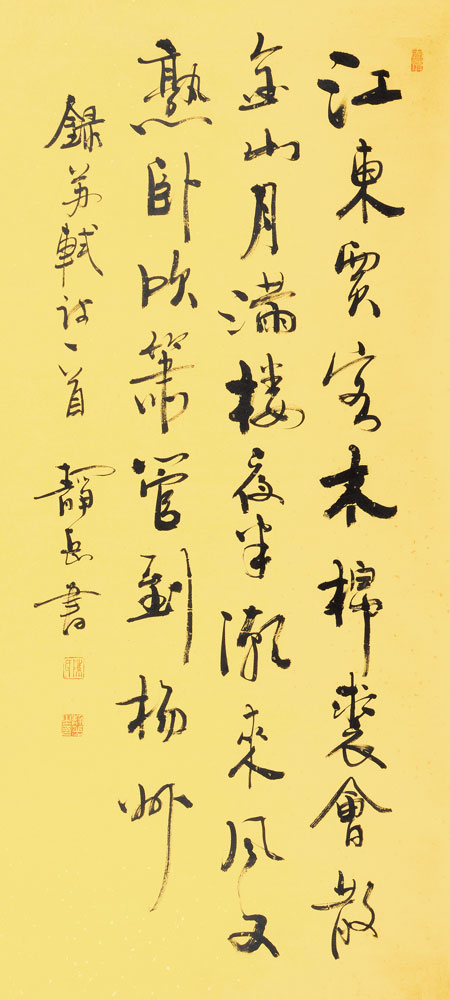 江東賈客木棉裘會散
金山月滿樓夜半潮來風又
熟卧吹簫管到楊州
錄蘇軾詩一首 靜岳書